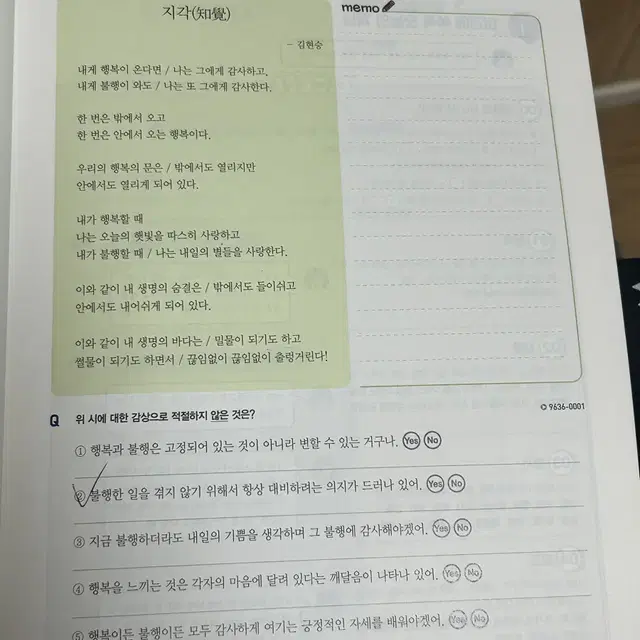 지각(知覺)
memo
- 김현승
내게 행복이 온다면 / 나는 그에게 감사하고,
내게 불행이 와도 / 나는 또 그에게 감사한다.
한 번은 밖에서 오고
한 번은 안에서 오는 행복이다.
우리의 행복의 문은 / 밖에서도 열리지만
안에서도 열리게 되어 있다.
내가 행복할 때
나는 오늘의 햇빛을 따스히 사랑하고
내가 불행할 때 / 나는 내일의 별들을 사랑한다.
이와 같이 내 생명의 숨결은 / 밖에서도 들이쉬고
안에서도 내어쉬게 되어 있다.
이와 같이 내 생명의 바다는 / 밀물이 되기도 하고
썰물이 되기도 하면서 / 끊임없이 끊임없이 출렁거린다!
Q 위 시에 대한 감상으로 적절하지 않은 것은?
9636-0001
① 행복과 불행은 고정되어 있는 것이 아니라 변할 수 있는 거구나. Yes No
② 불행한 일을 겪지 않기 위해서 항상 대비하려는 의지가 드러나 있어. Yes No
③ 지금 불행하더라도 내일의 기쁨을 생각하며 그 불행에 감사해야겠어. Yes No
④ 행복을 느끼는 것은 각자의 마음에 달려 있다는 깨달음이 나타나 있어. Yes No
⑤ 행복이든 불행이든 모두 감사하게 여기는 긍정적인 자세를 배워야겠어. Yes No